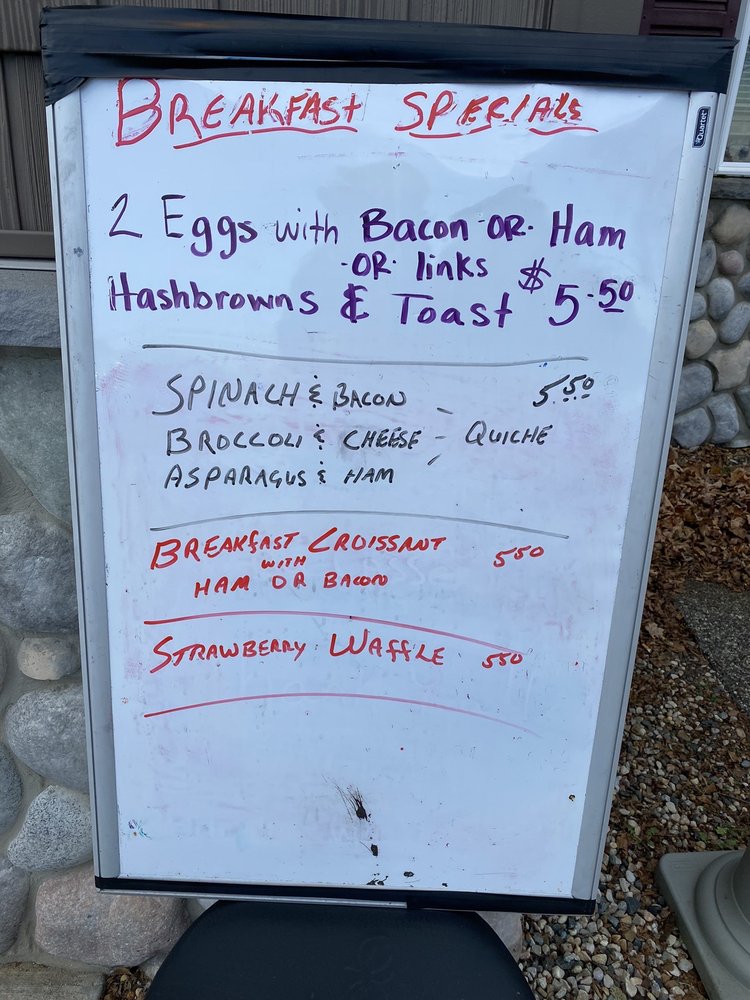 BREAKFAST SPECIALS
Quartet
2 Eggs with Bacon -OR- Ham
-OR- links
Hashbrowns & Toast $5.50
SPINACH & BACON 5.50
BROCCOLI & CHEESE - QUICHE
ASPARAGUS & HAM
BREAKFAST CROISSANT 550
WITH
HAM OR BACON
STRAWBERRY WAFFLE 550